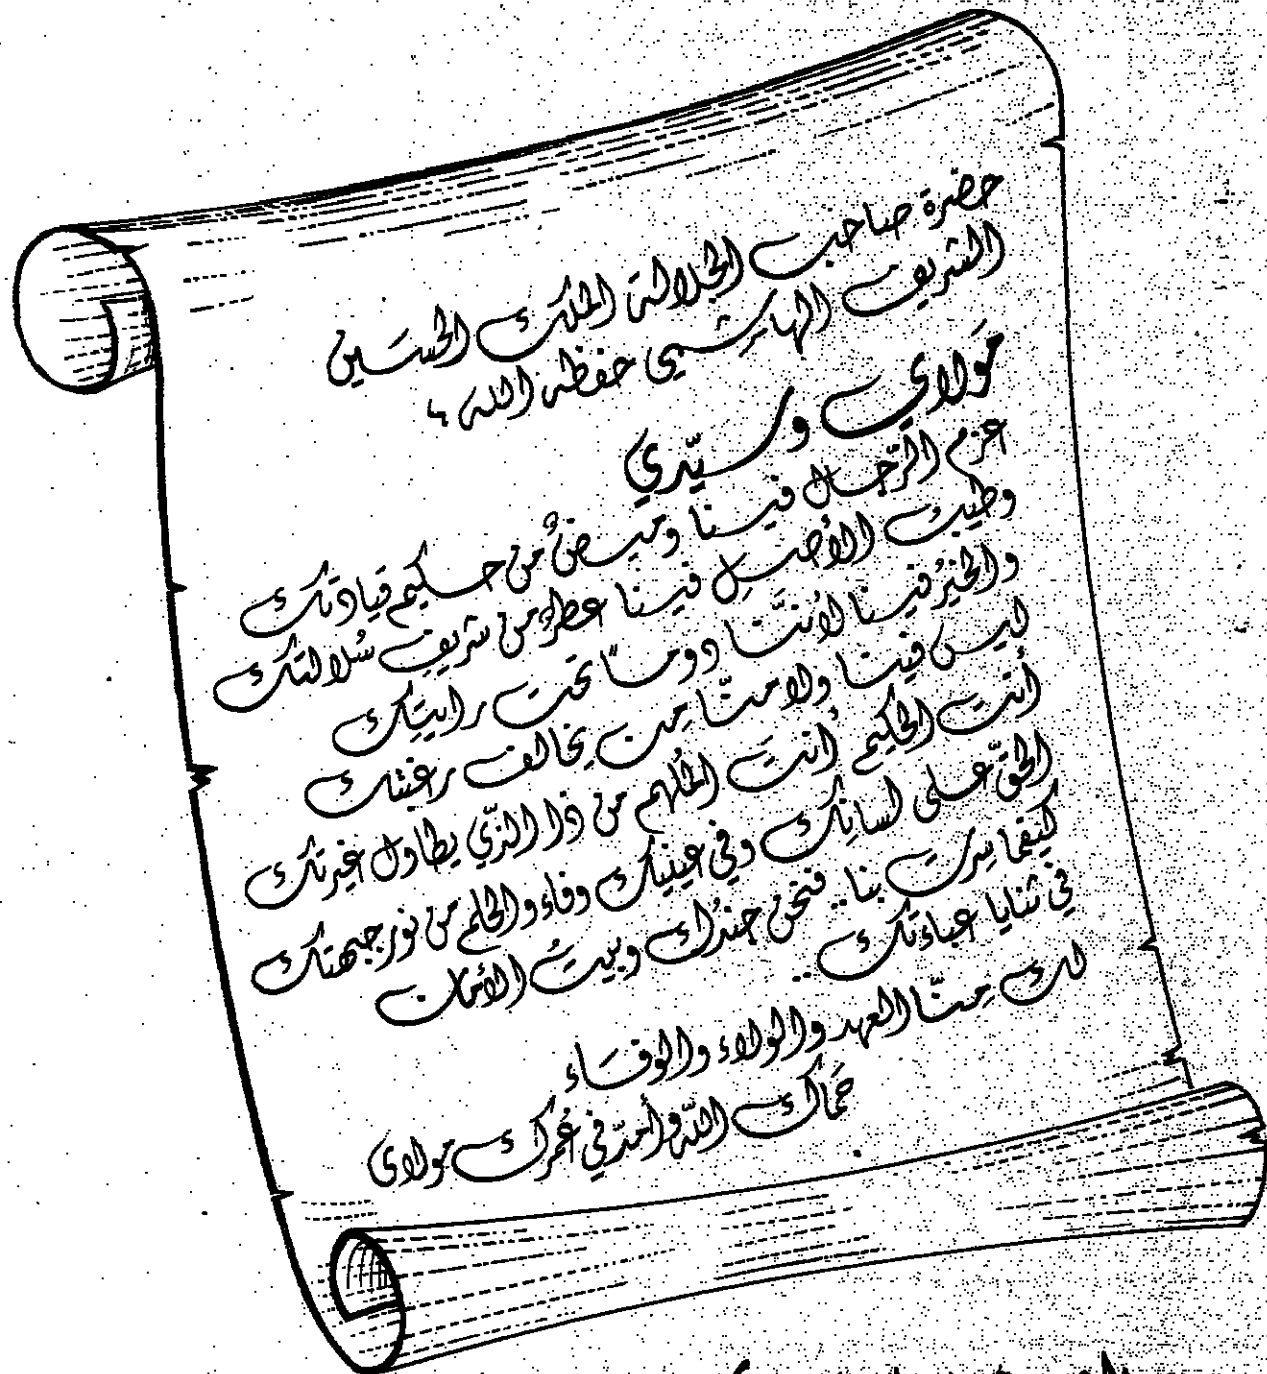 حضرة صاحب الجلالة الملك الحسين
الشريف الهاشمي حفظه الله
مولاي وسيّدي
عزم الرّجال فينا وميضٌ من حكيم قيادتك
وطيب الأصل فينا عطرٌ من شريف سُلالتك
والخيرُ فينا لأنّنا دومًا تحت رايتك
ليس فينا ولا منّا من يخالف رغبتك
أنت الحكيم أنتَ المُلهم من ذا الذّي يطاول غيرتك
الحقّ على لسانك وفي عينيك وفاء والحلم من نور جبهتك
كيفما سرت بنا.. فنحن جندُك وبيتُ الأمان
في ثنايا عباءتك ..
لك منّا العهد والولاء والوفاء
حَماك اللّه وأمدّ في عُمرك مولاي